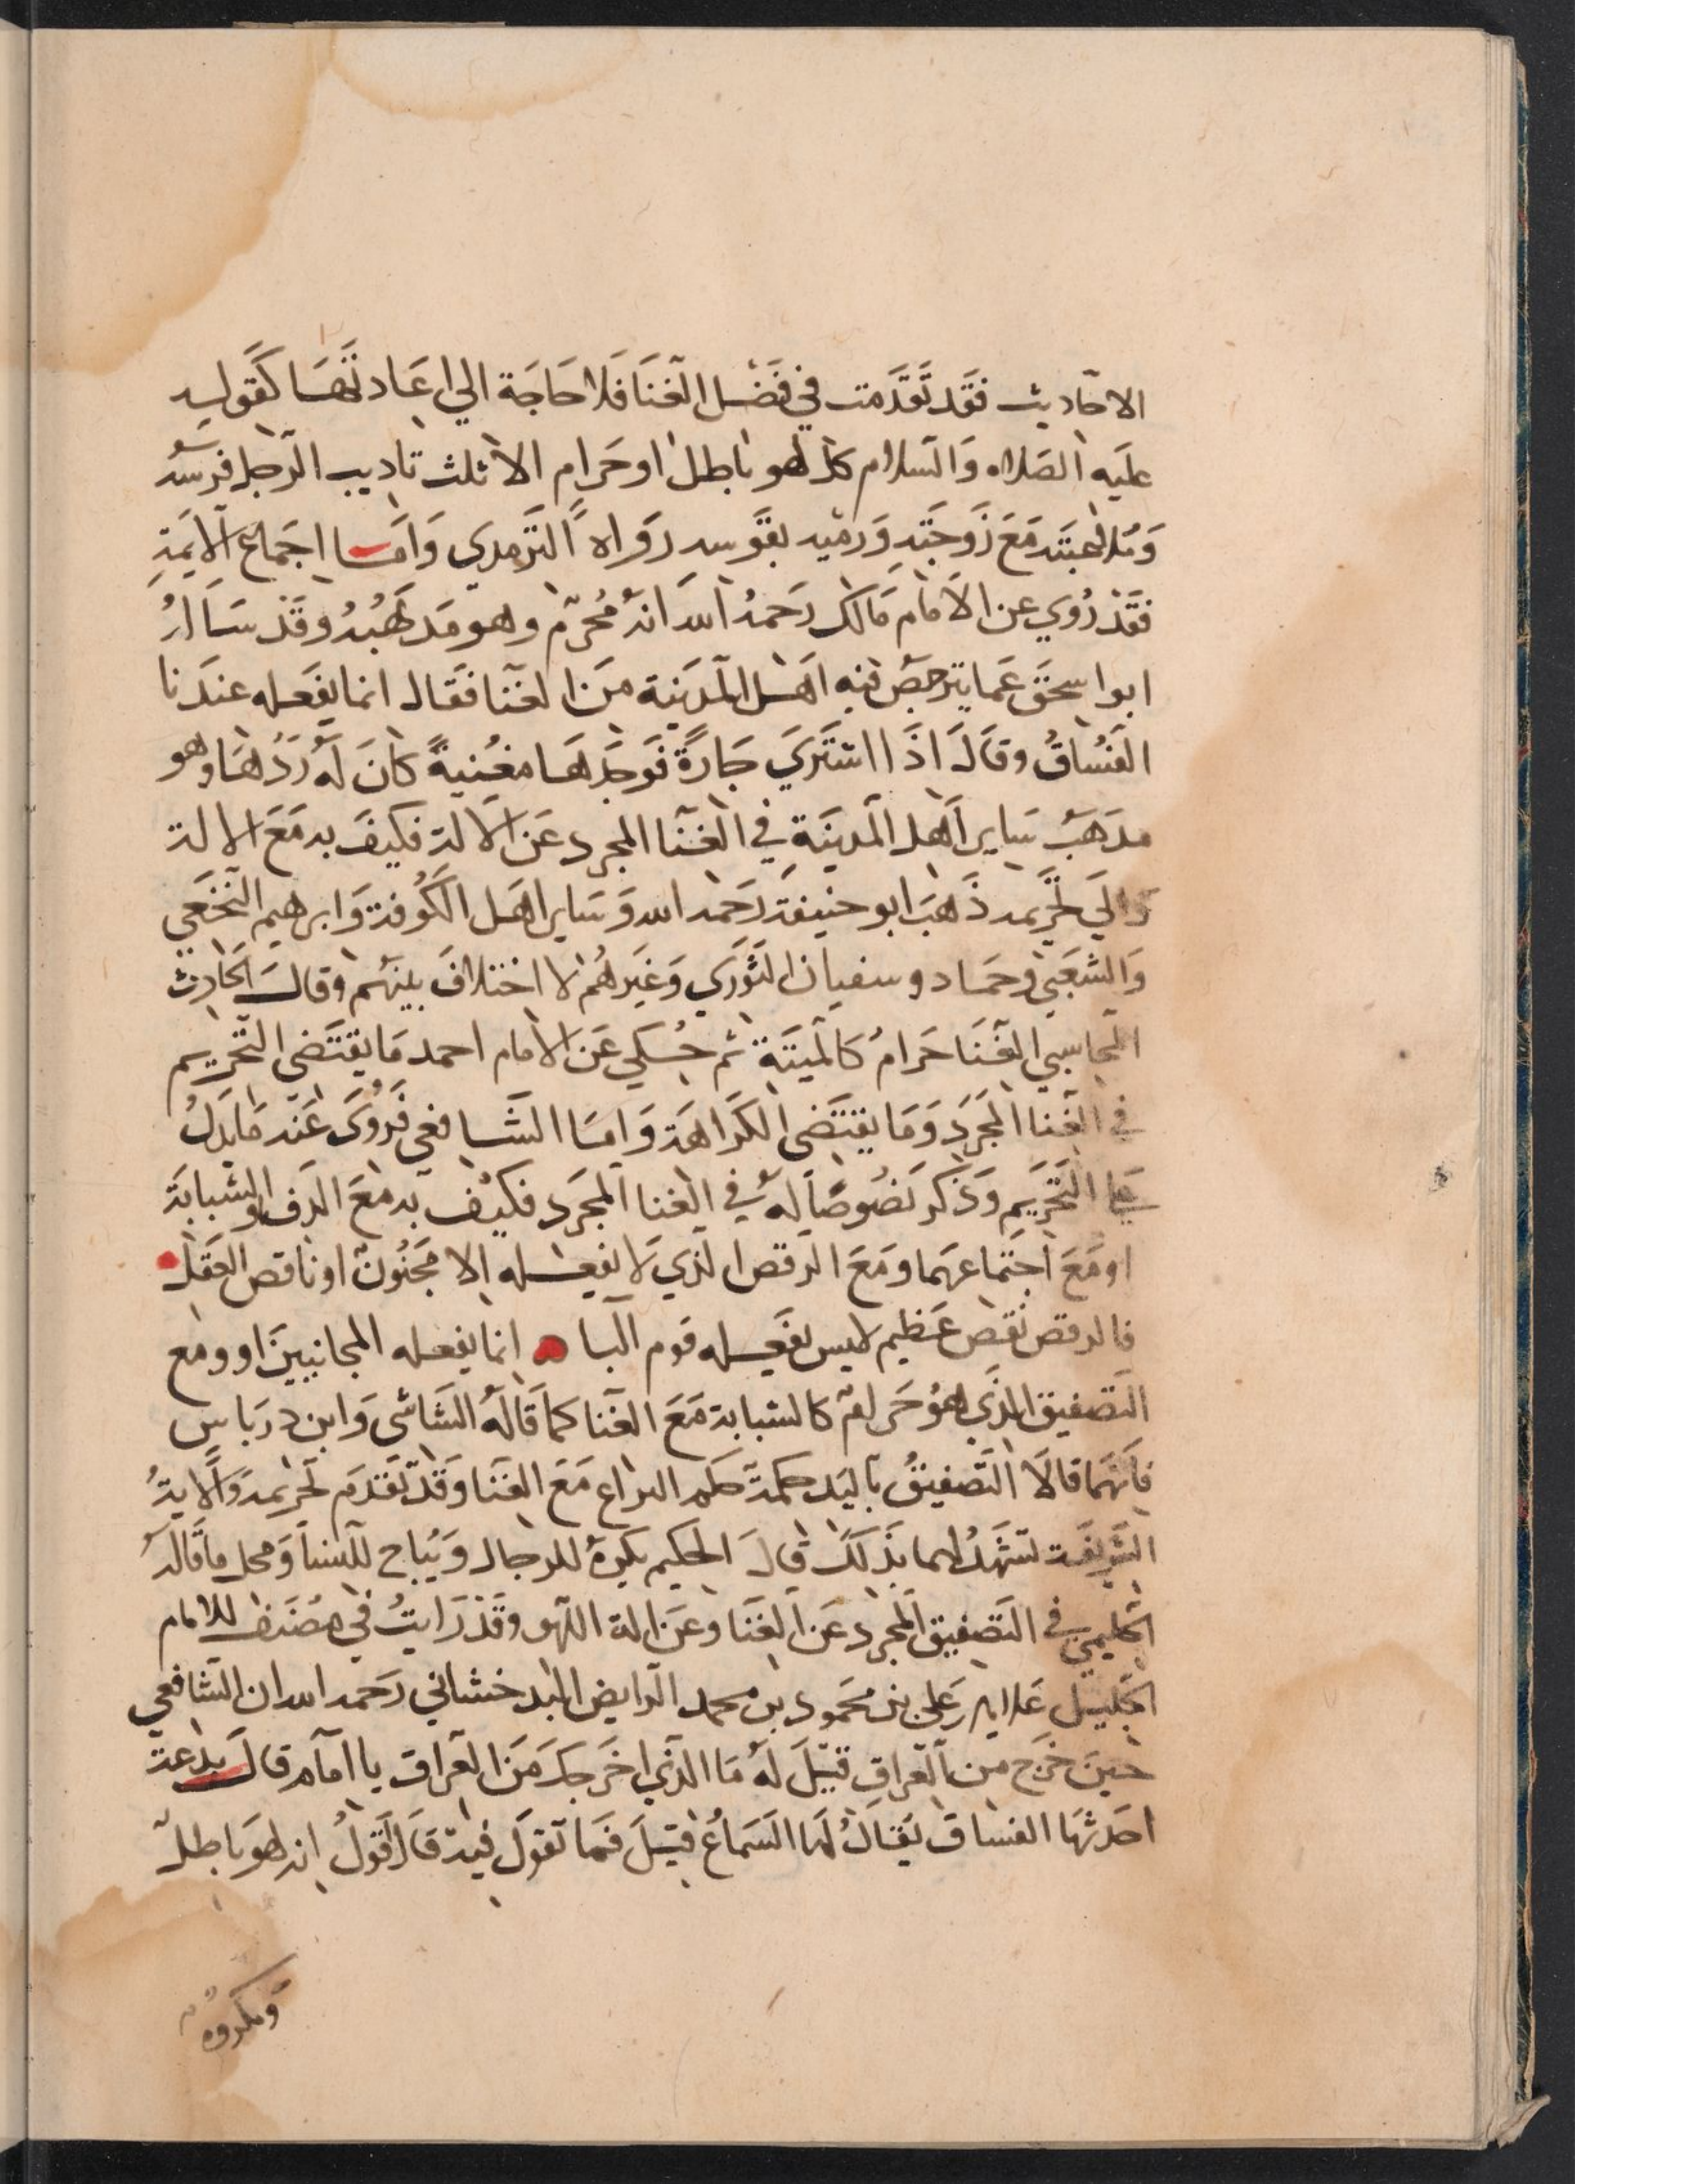 الاحاديث فقد تقدمت في فضل الغنا فلا حاجة الي اعادتها كقوله
عليه الصلاه والسلام كل لهو باطل او حرام الا ثلث تاديب الرجل فرسه
وملاعبته مع زوجته ورميه بقوسه رواه الترمدي واما اجماع الايمة
فقد روي عن الامام مالك رحمه الله انه محرم وهو مدهبه وقد ساله
ابو اسحق عما يترخص فيه اهل المدينة من الغنا فقال انما يفعله عندنا
الفساق وقال اذا اشتري جارة فوجدها مغنية كان له ردها وهو
مدهب ساير اهل المدينة في الغنا المجرد عن الالة فكيف به مع الالة
والي تحريمه ذهب ابو حنيفة رحمه الله وساير اهل الكوفة وابرهيم النخعي
والشعبي وحماد وسفيان الثوري وغيرهم لا اختلاف بينهم وقال الحارث
المحاسبي الغنا حرام كالميتة ثم حكي عن الامام احمد ما يقتضي التحريم
في الغنا المجرد وما يقتضي الكراهة واما الشافعي فروي عنه ما يدل
علي التحريم وذكر نصوصا له في الغنا المجرد فكيف به مع الدف والشبابة
او مع اجتماعهما ومع الرقص الذي لا يفعله الا مجنون او ناقص العقل
فالرقص نقص عظيم ليس يفعله قوم البا انما يفعله المجانيين او ومع
التصفيق الذي هو حرام كالشبابة مع الغنا كما قاله الشاشي وابن درباس
فانهما قالا التصفيق باليد حكمه حكم اليراع مع الغنا وقد تقدم تحريمه والاية
الشريفة تشهد لهما بذلك قال الحكيم يكره للرجال ويباح للنسا ومحل ما قاله
الحليمي في التصفيق المجرد عن الغنا وعن الة اللهو وقد رايت في مصنف للامام
الجليل علاي علي بن محمود بن محمد الرايض البدخشاني رحمه الله ان الشافعي
حين خرج من العراق قيل له ما الذي اخرجك من العراق يا امام قال بدعة
احدثها الفساق يقال لها السماع قيل فما تقول فيه قال اقول انه لهو باطل
ومكروه